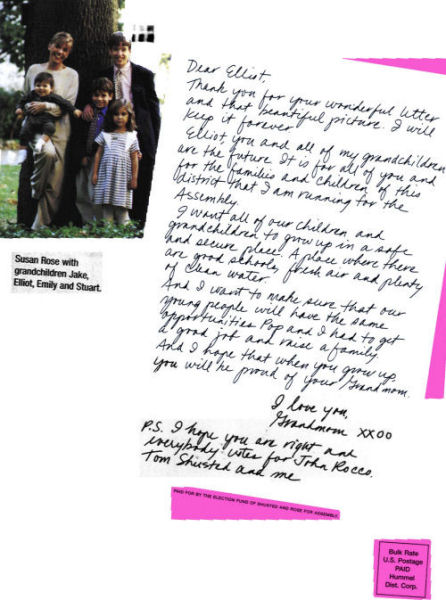 Dear Elliot,
Thank you for your wonderful letter
and that beautiful picture. I will
keep it forever.
Elliot, you and all of my grandchildren
are the future. It is for all of you and
for the families and children of this
district that I am running for the
Assembly.
I want all of our children and
grandchildren to grow up in a safe
and secure place. A place where there
are good schools, fresh air and plenty
of clean water.
And I want to make sure that our
young people will have the same
opportunities Pop and I had to get
a good job and raise a family.
And I hope that when you grow up,
you will be proud of your Grandmom.
I love you,
Grandmom XXOO
P.S. I hope you are right and
everybody votes for John Rocco,
Tom Shusted and me
Susan Rose with
grandchildren Jake,
Elliot, Emily and Stuart.
PAID FOR BY THE ELECTION FUND OF SHUSTED AND ROSE FOR ASSEMBLY.
Bulk Rate
U.S. Postage
PAID
Hummel
Dist. Corp.